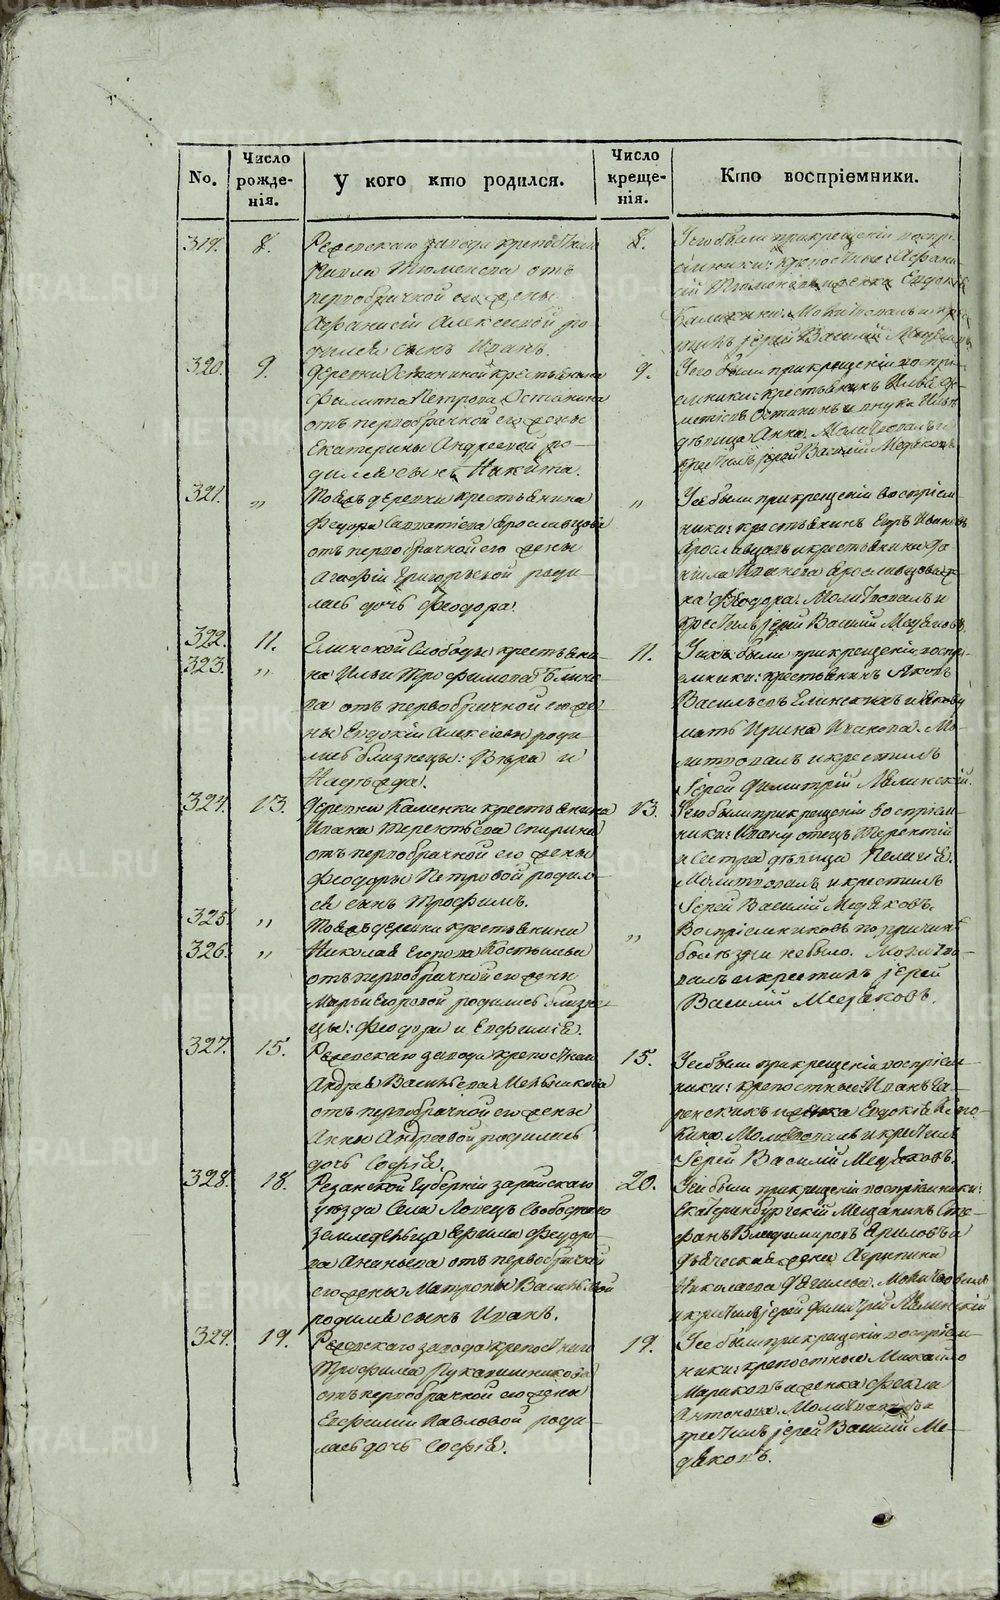 No.
Число рожде-нія.
У кого кто родился.
Число креще-нія.
Кто воспріемники.
319. 8.
Режевскаго завода крепостнаго
Павла Тюменева отъ
первобрачной его жены
Афанисіи Алексеевой ро-
дился сынъ Иванъ.
8.
У сего были при крещеніи воспрі-
емники: крепостные: Афана-
сій Тюменевъ и женка Евдокія
Молитвовалъ и кре-
стилъ іерей Василій Медяковъ.
320. 9.
Деревни Останиной крестьянина
Филиппа Петрова Останина
отъ первобрачной его жены
Екатерины Андреевой ро-
дился сынъ Никита.
9.
У сего были при крещеніи воспрі-
емники: крестьянинъ
Останинъ и внука
девица Анна. Молитвовалъ и
крестилъ іерей Василій Медяковъ.
321. „
Тояжъ деревни крестьянина
Федора Савватіева Ярославцова
отъ первобрачной его жены
Агафіи Григорьевой роди-
лась дочь Феодора.
„
У сей были при крещеніи воспріем-
ники: крестьянинъ Егоръ Ивановъ
Ярославцовъ и крестьянина Да-
нила Иванова Ярославцова же-
на Феодора. Молитвовалъ и
крестилъ іерей Василій Медяковъ.
322. 11.
323. „
Глинской Слободы крестьяни-
на Ильи Трофимова Глинс-
ва отъ первобрачной его же-
ны Евдокіи Алексеевы роди-
лись близнецы: Вѣра и
Надѣжда.
11.
У нихъ были при крещеніи воспрі-
емники: крестьянинъ Яковъ
Васильевъ
мать Ирина Иванова. Мо-
литвовалъ и крестилъ
Іерей Димитрій Явлинскій.
324. 13.
Деревни Каменки крестьянина
Ивана Терентьева Спирина
отъ первобрачной его жены
Феодоры Петровой родил-
ся сынъ Трофимъ.
13.
У сего были при крещеніи воспріем-
ники: Ивану отецъ Терентій
и сестра девица Пелагия.
Молитвовалъ и крестилъ
Іерей Василій Медяковъ.
325. „
326. „
Тояжъ деревни крестьянина
Николая Егорова Костылева
отъ первобрачной его жены
Марьи Егоровой родились близне-
цы: Феодора и Евфимія.
„
Воспріемниковъ по причинѣ
болѣзни не было. Молитво-
валъ и крестилъ іерей
Василій Медяковъ.
327. 15.
Режевскаго завода крепостнаго
Андрея Васильева Мельникова
отъ первобрачной его жены
Анны Андреевой родилась
дочь Софія.
15.
У сей были при крещеніи воспріем-
ники: крепостные: Иванъ Га-
ренскихъ и женка Евдокія
кина. Молитвовалъ и крестилъ
Іерей Василій Медяковъ.
328. 18.
Резанской Губерніи Зарайскаго
уезда Села Ловецъ Свободнаго
земледѣльца Ефима Федоро-
ва Ананьева отъ первобрачной
его жены Матроны Васильевой
родился сынъ Иванъ.
20.
У сего были при крещеніи воспріемники:
Екатеринбургскій Мещанинъ Сте-
фанъ Владимировъ Ериловъ и
дьяческая жена
Николаева Дягилева. Молитвовалъ
и крестилъ іерей Димитрій Явлинскій
329. 19.
Режевскаго завода крепостнаго
Трофима Рукавишникова
отъ первобрачной его жены
Евфиміи Павловой роди-
лась дочь Софія.
19.
У сей были при крещеніи воспріем-
ники: крепостные Михайло
Мариковъ и женка Фекла
Антонова. Молитвовалъ и
крестилъ іерей Василій Ме-
дяковъ.